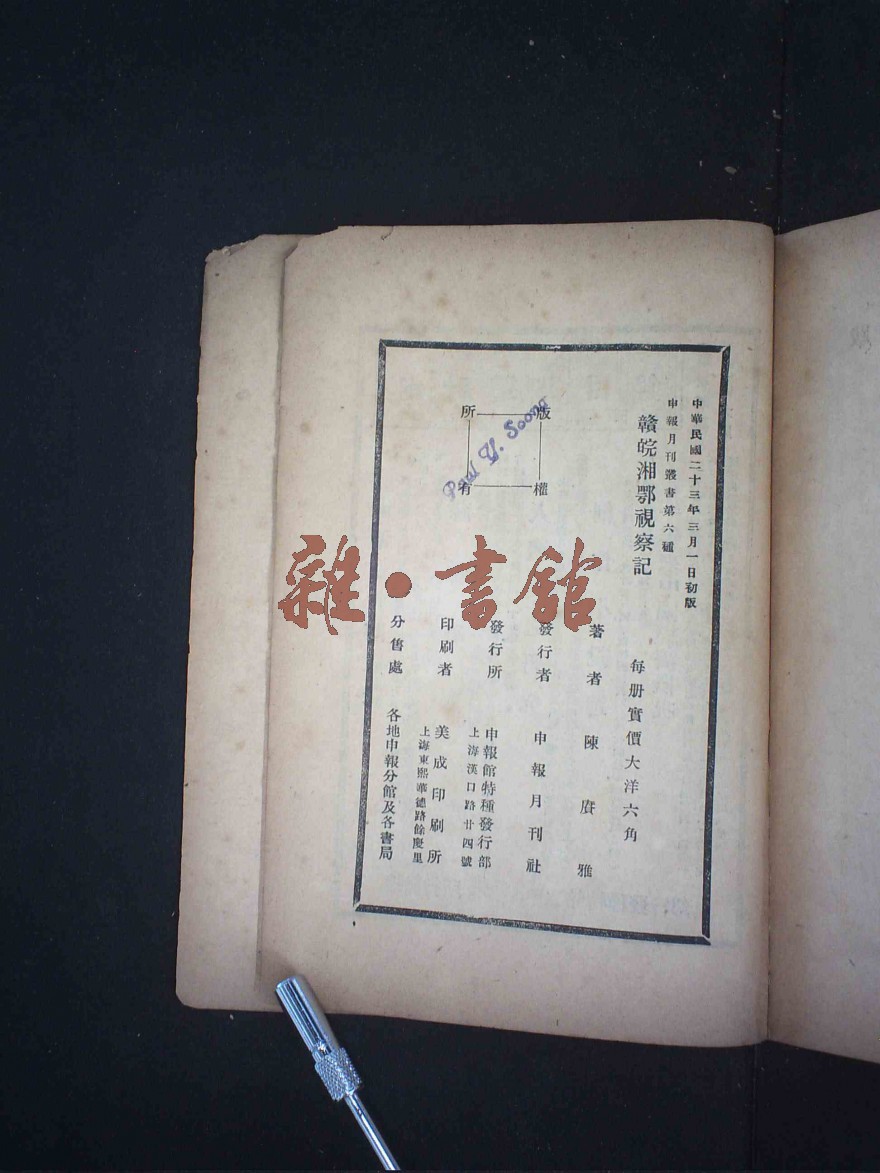 中華民國二十三年三月一日初版
申報月刊叢書第六種
贛皖湘鄂視察記
每册實價大洋六角
著者 陳賡雅
發行者 申報月刊社
發行所 申報館特種發行部
上海漢口路廿四號
印刷者 美成印刷所
上海東熙華德路餘慶里
分售處 各地申報分館及各書局
版權所有
Paul Y. Soong
雜·書館